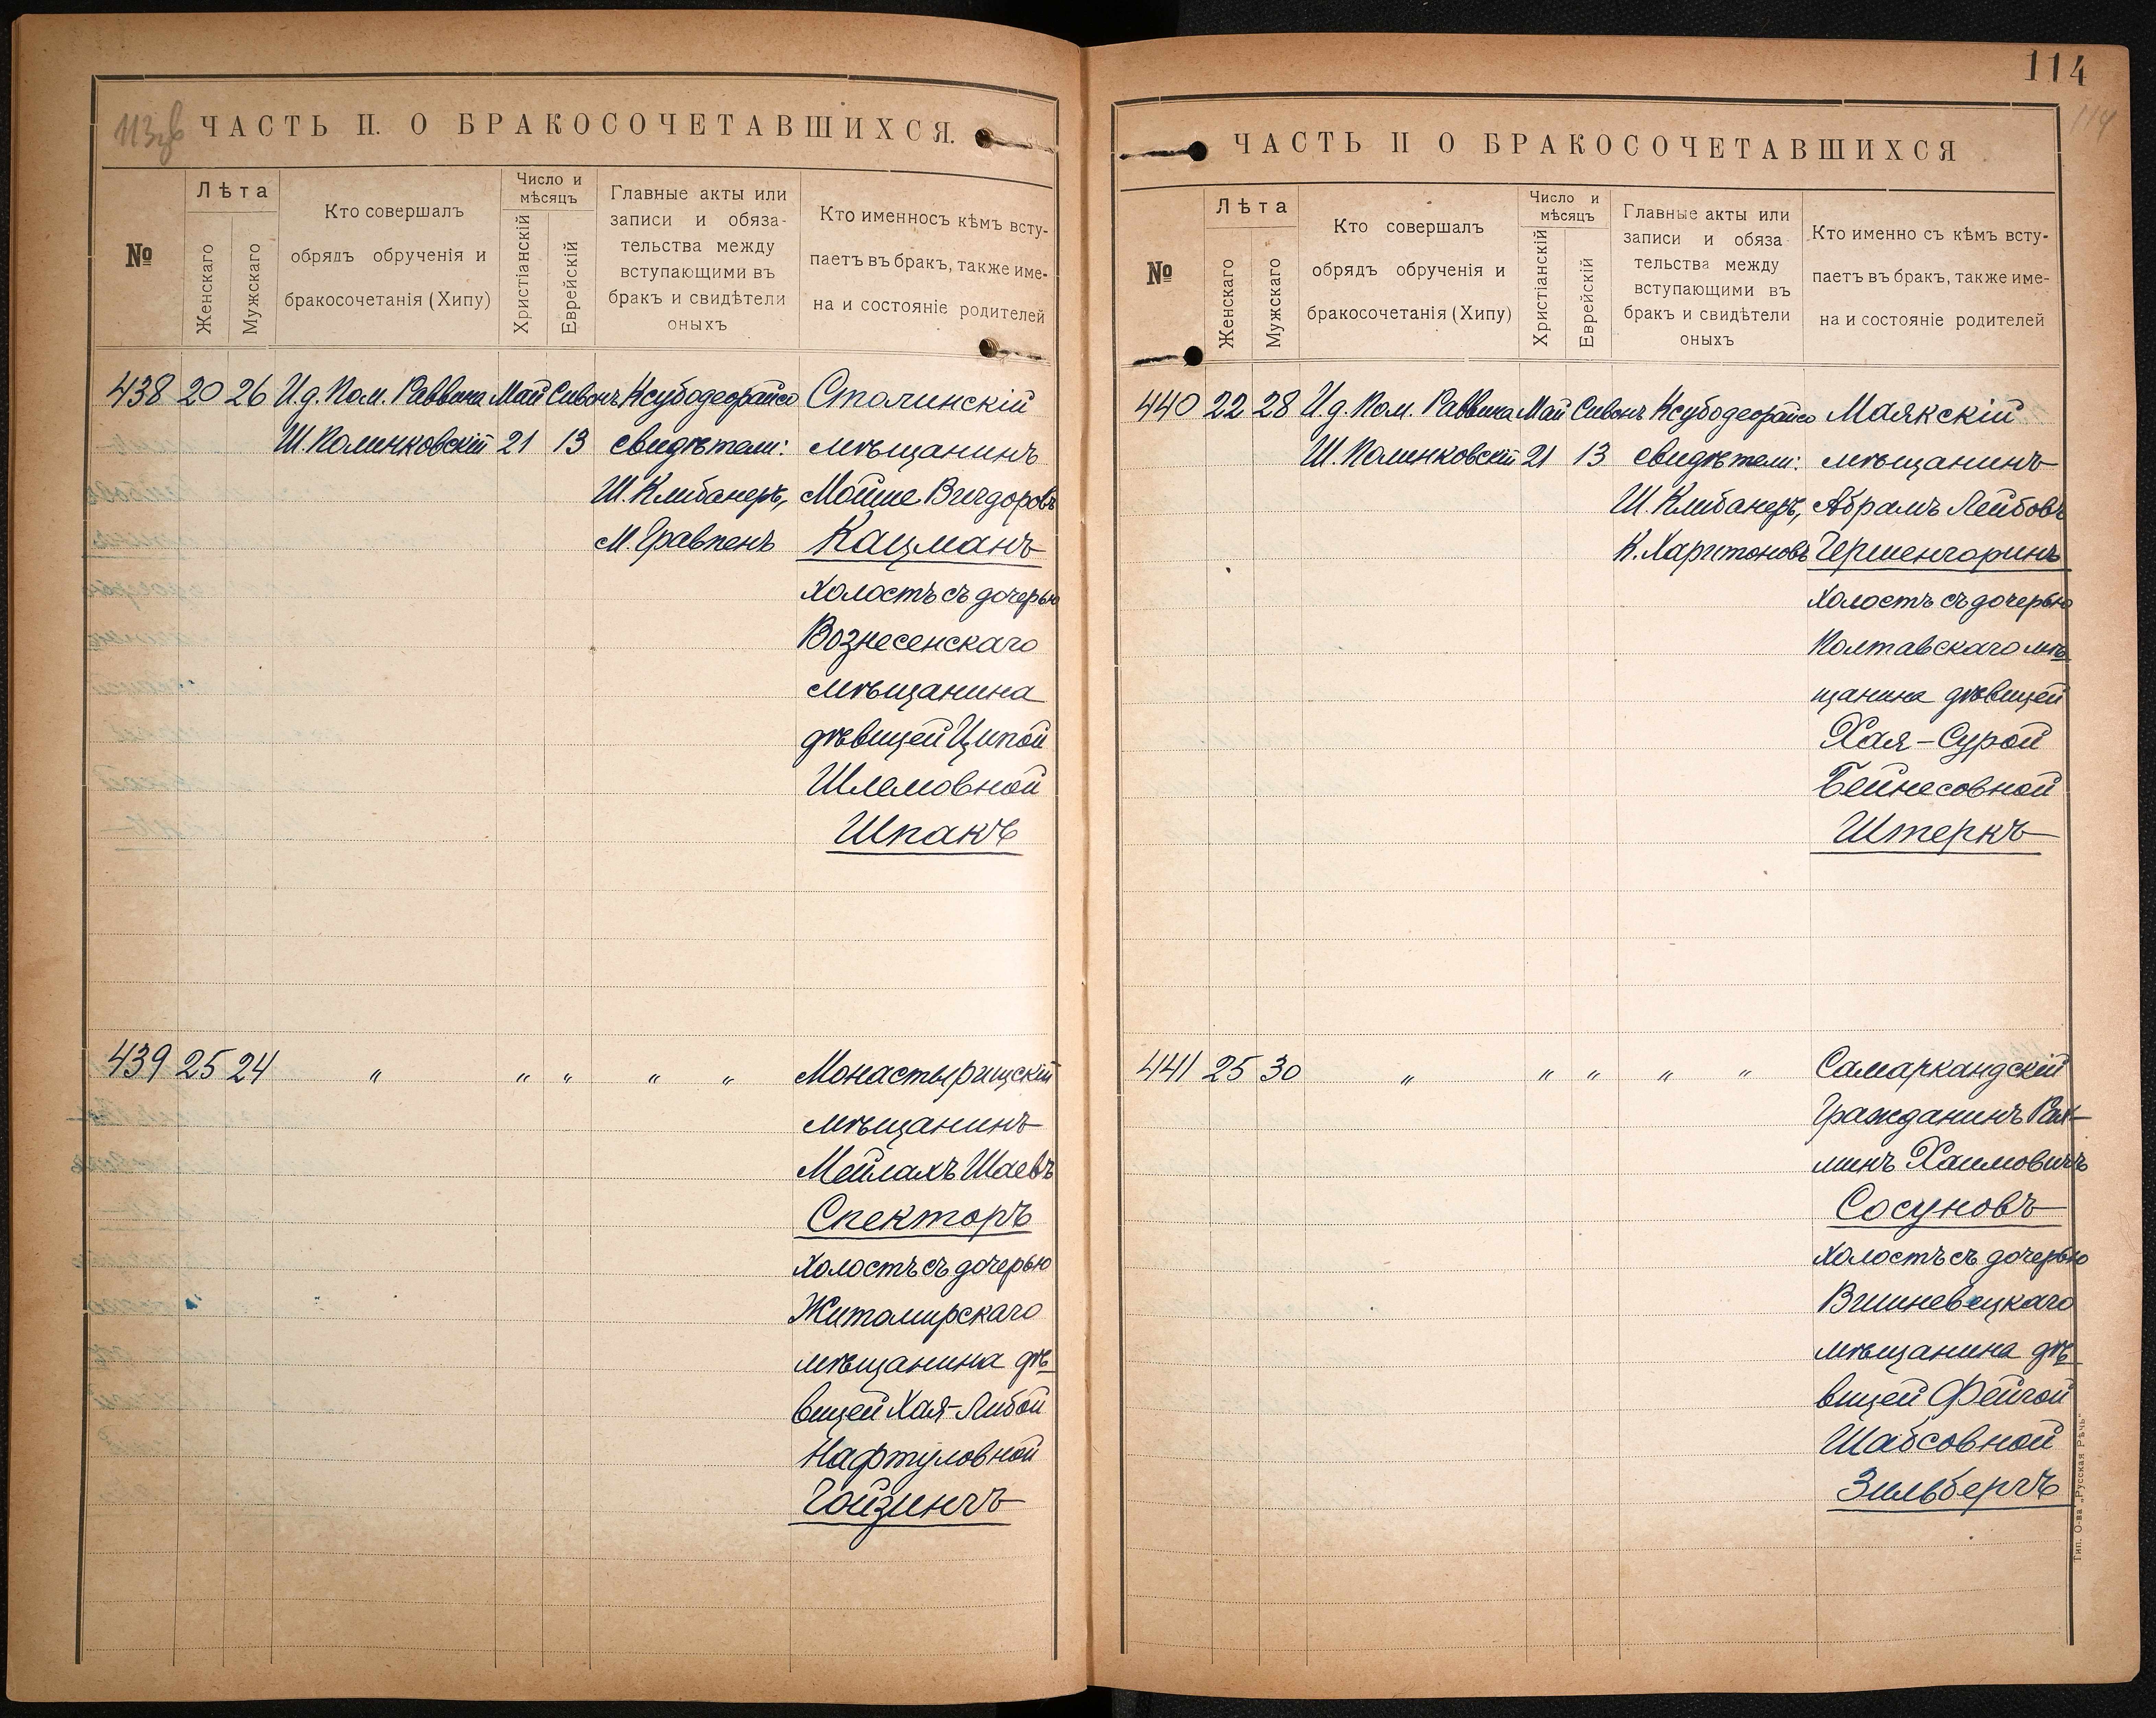 113 об
ЧАСТЬ II. О БРАКОСОЧЕТАВШИХСЯ.
№
Лѣта
Женскаго
Мужскаго
Кто совершалъ
обрядъ обрученія и
бракосочетанія (Хипу)
Число и
мѣсяцъ
Христіанскій
Еврейскій
Главные акты или
записи и обяза-
тельства между
вступающими въ
бракъ и свидѣтели
оныхъ
Кто именносъ кѣмъ всту-
паетъ въ бракъ, также име-
на и состояніе родителей
438 20 26 И.д. Пом. Раввина Май Сивонъ Ксубодеорайсо Столинскій
Ш. Полинковскій 21 13 свидѣтели: мѣщанинъ
Ш. Клибанеръ, Мойше Вигдоровъ
М. Гравпенъ Кацманъ
холостъ съ дочерью
Вознесенскаго
мѣщанина
дѣвицей Ципой
Шлемовной
Шпакъ
439 25 24 " " " " " Монастырищскій
мѣщанинъ
Мейлахъ Шаевъ
Спекторъ
холостъ съ дочерью
Житомирскаго
мѣщанина дѣ-
вицей Хая-Либой
Нафтуловной
Гойзингъ
114
114
ЧАСТЬ II О БРАКОСОЧЕТАВШИХСЯ
№
Лѣта
Женскаго
Мужскаго
Кто совершалъ
обрядъ обрученія и
бракосочетанія (Хипу)
Число и
мѣсяцъ
Христіанскій
Еврейскій
Главные акты или
записи и обяза
тельства между
вступающими въ
бракъ и свидѣтели
оныхъ
Кто именно съ кѣмъ всту-
паетъ въ бракъ, также име-
на и состояніе родителей
440 22 28 И.д. Пом. Раввина Май Сивонъ Ксубодеорайсо Маякскій
Ш. Полинковскій 21 13 свидѣтели: мѣщанинъ
Ш. Клибанеръ, Абрамъ Лейбовъ
К. Харитоновъ Гершенгоринъ
холостъ съ дочерью
Полтавскаго мѣ-
щанина дѣвицей
Хая-Сурой
Бейнесовной
Штеркъ
441 25 30 " " " " " Самаркандскій
Гражданинъ
минъ Хаимовичъ
Сосуновъ
холостъ съ дочерью
Вишневецкаго
мѣщанина дѣ-
вицей Фейгой
Шабсовной
Зильбергъ
Тип. О-ва „Русская Рѣчь"